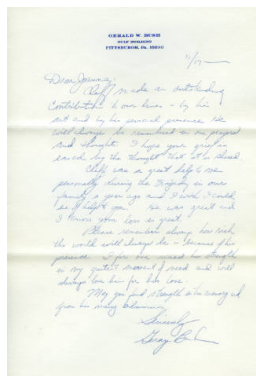 GERALD W. BUSH
GULF BUILDING
PITTSBURGH, PA. 15230
Dear
Cliff made an outstanding
contribution to our lives - by his
and by his presence. He
will always be remembered in our prayers
and thoughts. I hope your grief is
eased by the thought that it is shared.
Cliff was a great help to me
personally during the tragedy in our
family a year ago and I wish I could
be of help to you. He was great and
I know your loss is great.
Please remember always how rich
the world will always be - because of his
presence. I for one used his strength
in my greatest moment of need and will
always love him for his love.
May you find strength in
from his many
Sincerely